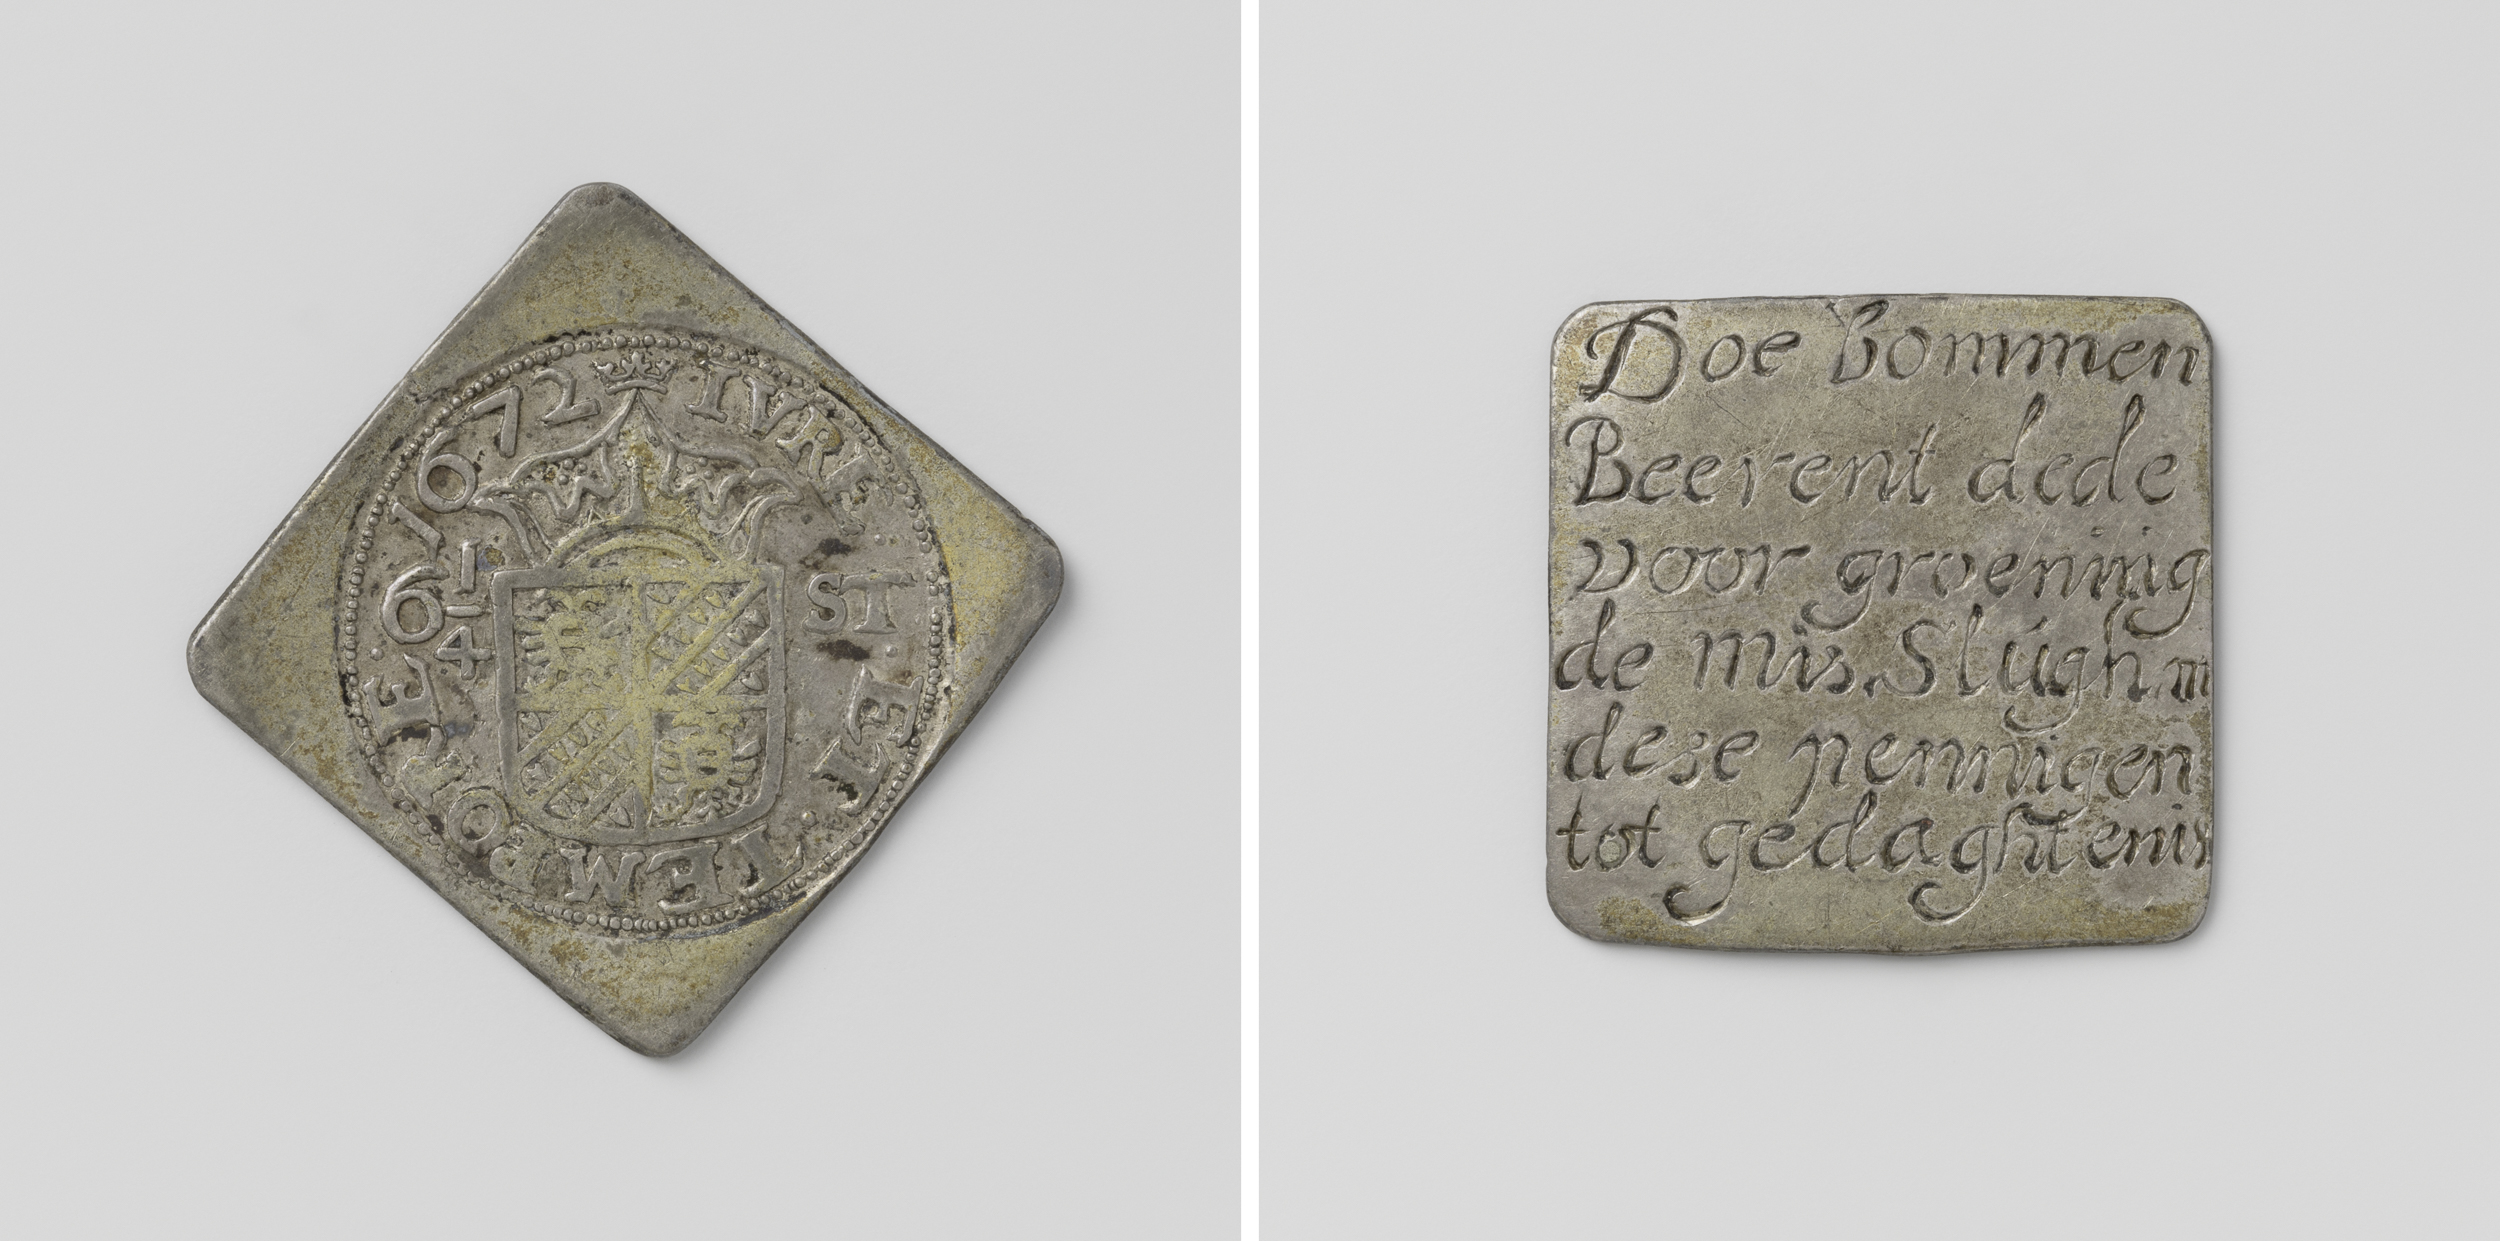 1672 IVRE · ET · TEMPORE ·
6 1/4 ST
Doe bommen
Beerent dede
voor groening
de mis. Slúgh m
dese pennigen
tot gedaghtenis